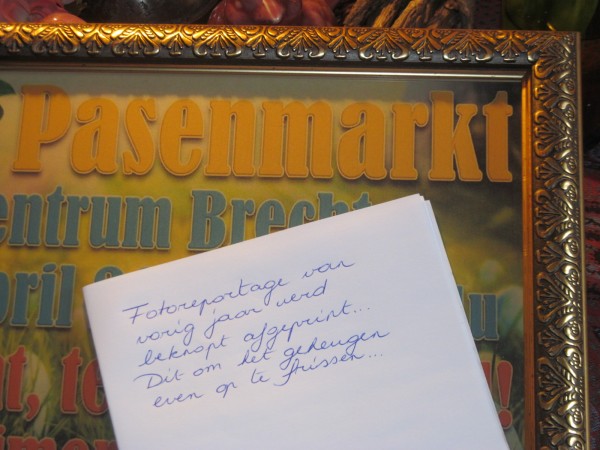 Pasenmarkt
entrum Brecht
pril
u
t, te
!
Fotoreportage van
vorig jaar werd
beknopt afgeprint...
Dit om het geheugen
even op te frissen...